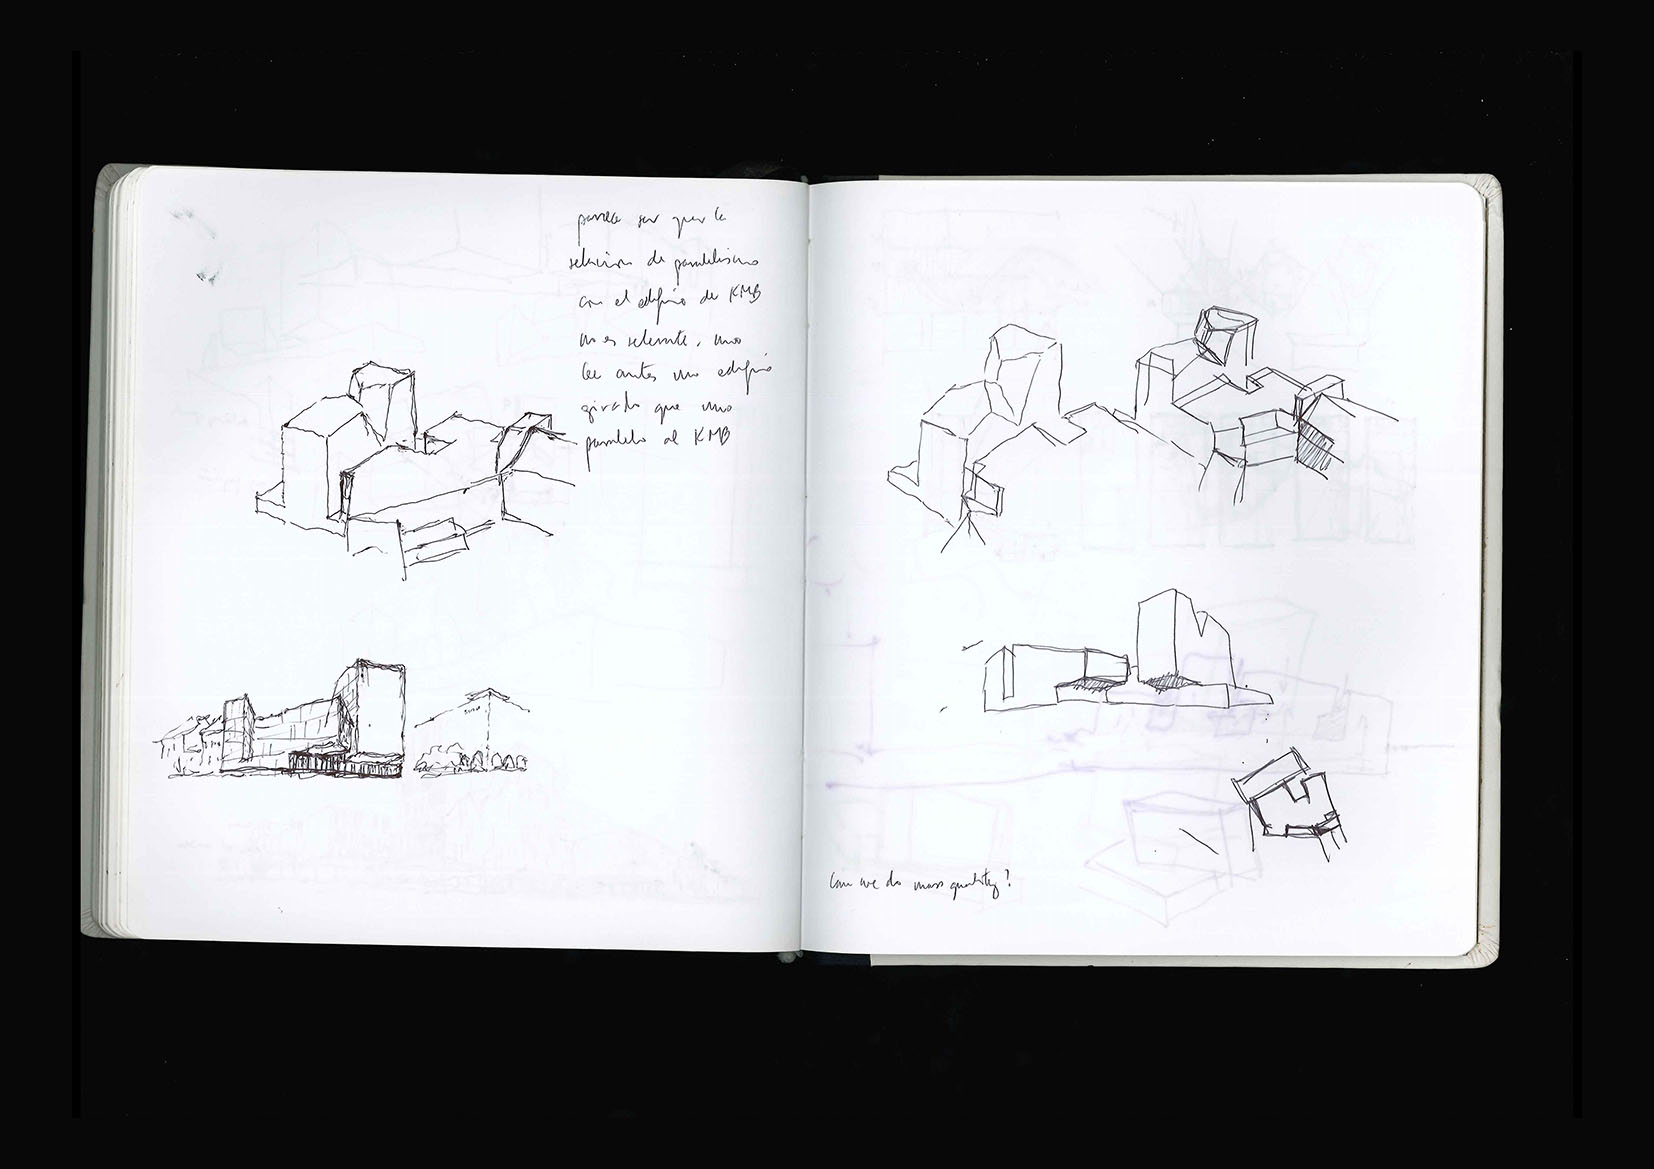 parece ser que la
relación de paralelismo
con el edificio de KMB
no es relevante, uno
lee antes un edificio
girado que uno
paralelo al KMB
Can we do mass quality?